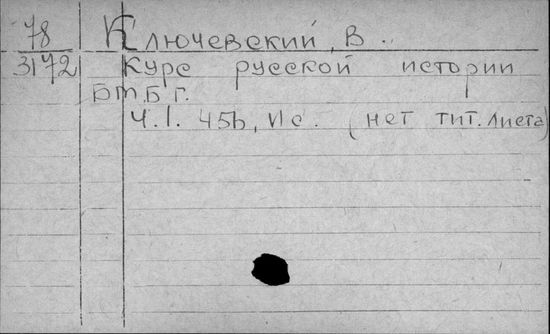 78 Ключевский, В.
3172 Курс русской истории
Бт. Б г.
Ч. I. 456, Ис. (нет тит. листа)